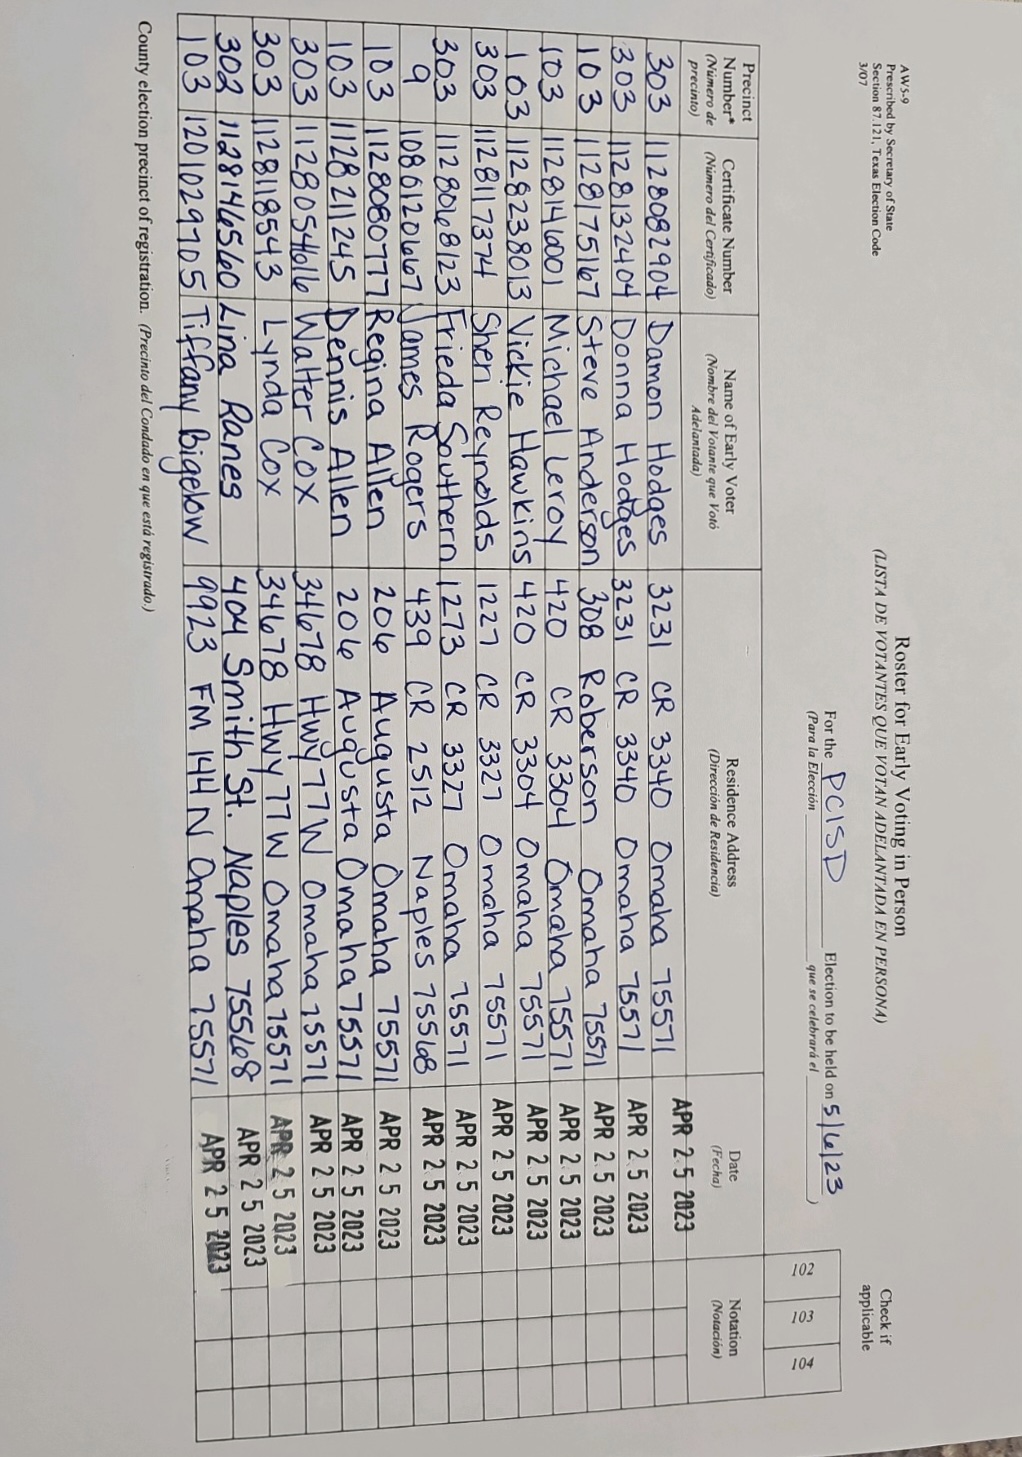 AW5-9
Prescribed by Secretary of State
Section 87.121, Texas Election Code
3/07
Roster for Early Voting in Person
(LISTA DE VOTANTES QUE VOTAN ADELANTADA EN PERSONA)
Check if applicable
For the PCISD Election to be held on 5/6/23
(Para la Elección que se celebrará el )
102 103 104
Precinct Number* (Número de precinto) Certificate Number (Número del Certificado) Name of Early Voter (Nombre del Votante que Votó Adelantada) Residence Address (Dirección de Residencia) Date (Fecha) Notation (Notación)
303 1128082904 Damon Hodges 3231 CR 3340 Omaha 75571 APR 25 2023
303 1128132404 Donna Hodges 3231 CR 3340 Omaha 75571 APR 25 2023
103 1128175167 Steve Anderson 308 Roberson Omaha 75571 APR 25 2023
103 1128146001 Michael Leroy 420 CR 3304 Omaha 75571 APR 25 2023
103 1128238013 Vickie Hawkins 420 CR 3304 Omaha 75571 APR 25 2023
303 1128117374 Sheri Reynolds 1227 CR 3327 Omaha 75571 APR 25 2023
303 1128068123 Frieda Southern 1273 CR 3327 Omaha 75571 APR 25 2023
9 1080120667 James Rogers 439 CR 2512 Naples 75568 APR 25 2023
103 1128080777 Regina Allen 206 Augusta Omaha 75571 APR 25 2023
103 1128211245 Dennis Allen 206 Augusta Omaha 75571 APR 25 2023
303 1128054616 Walter Cox 34678 Hwy 77W Omaha 75571 APR 25 2023
303 1128118543 Lynda Cox 34678 Hwy 77W Omaha 75571 APR 25 2023
302 1128146560 Lina Ranes 404 Smith St. Naples 75568 APR 25 2023
103 1201029705 Tiffany Bigelow 9923 FM 144 N Omaha 75571 APR 25 2023
County election precinct of registration. (Precinto del Condado en que está registrado.)